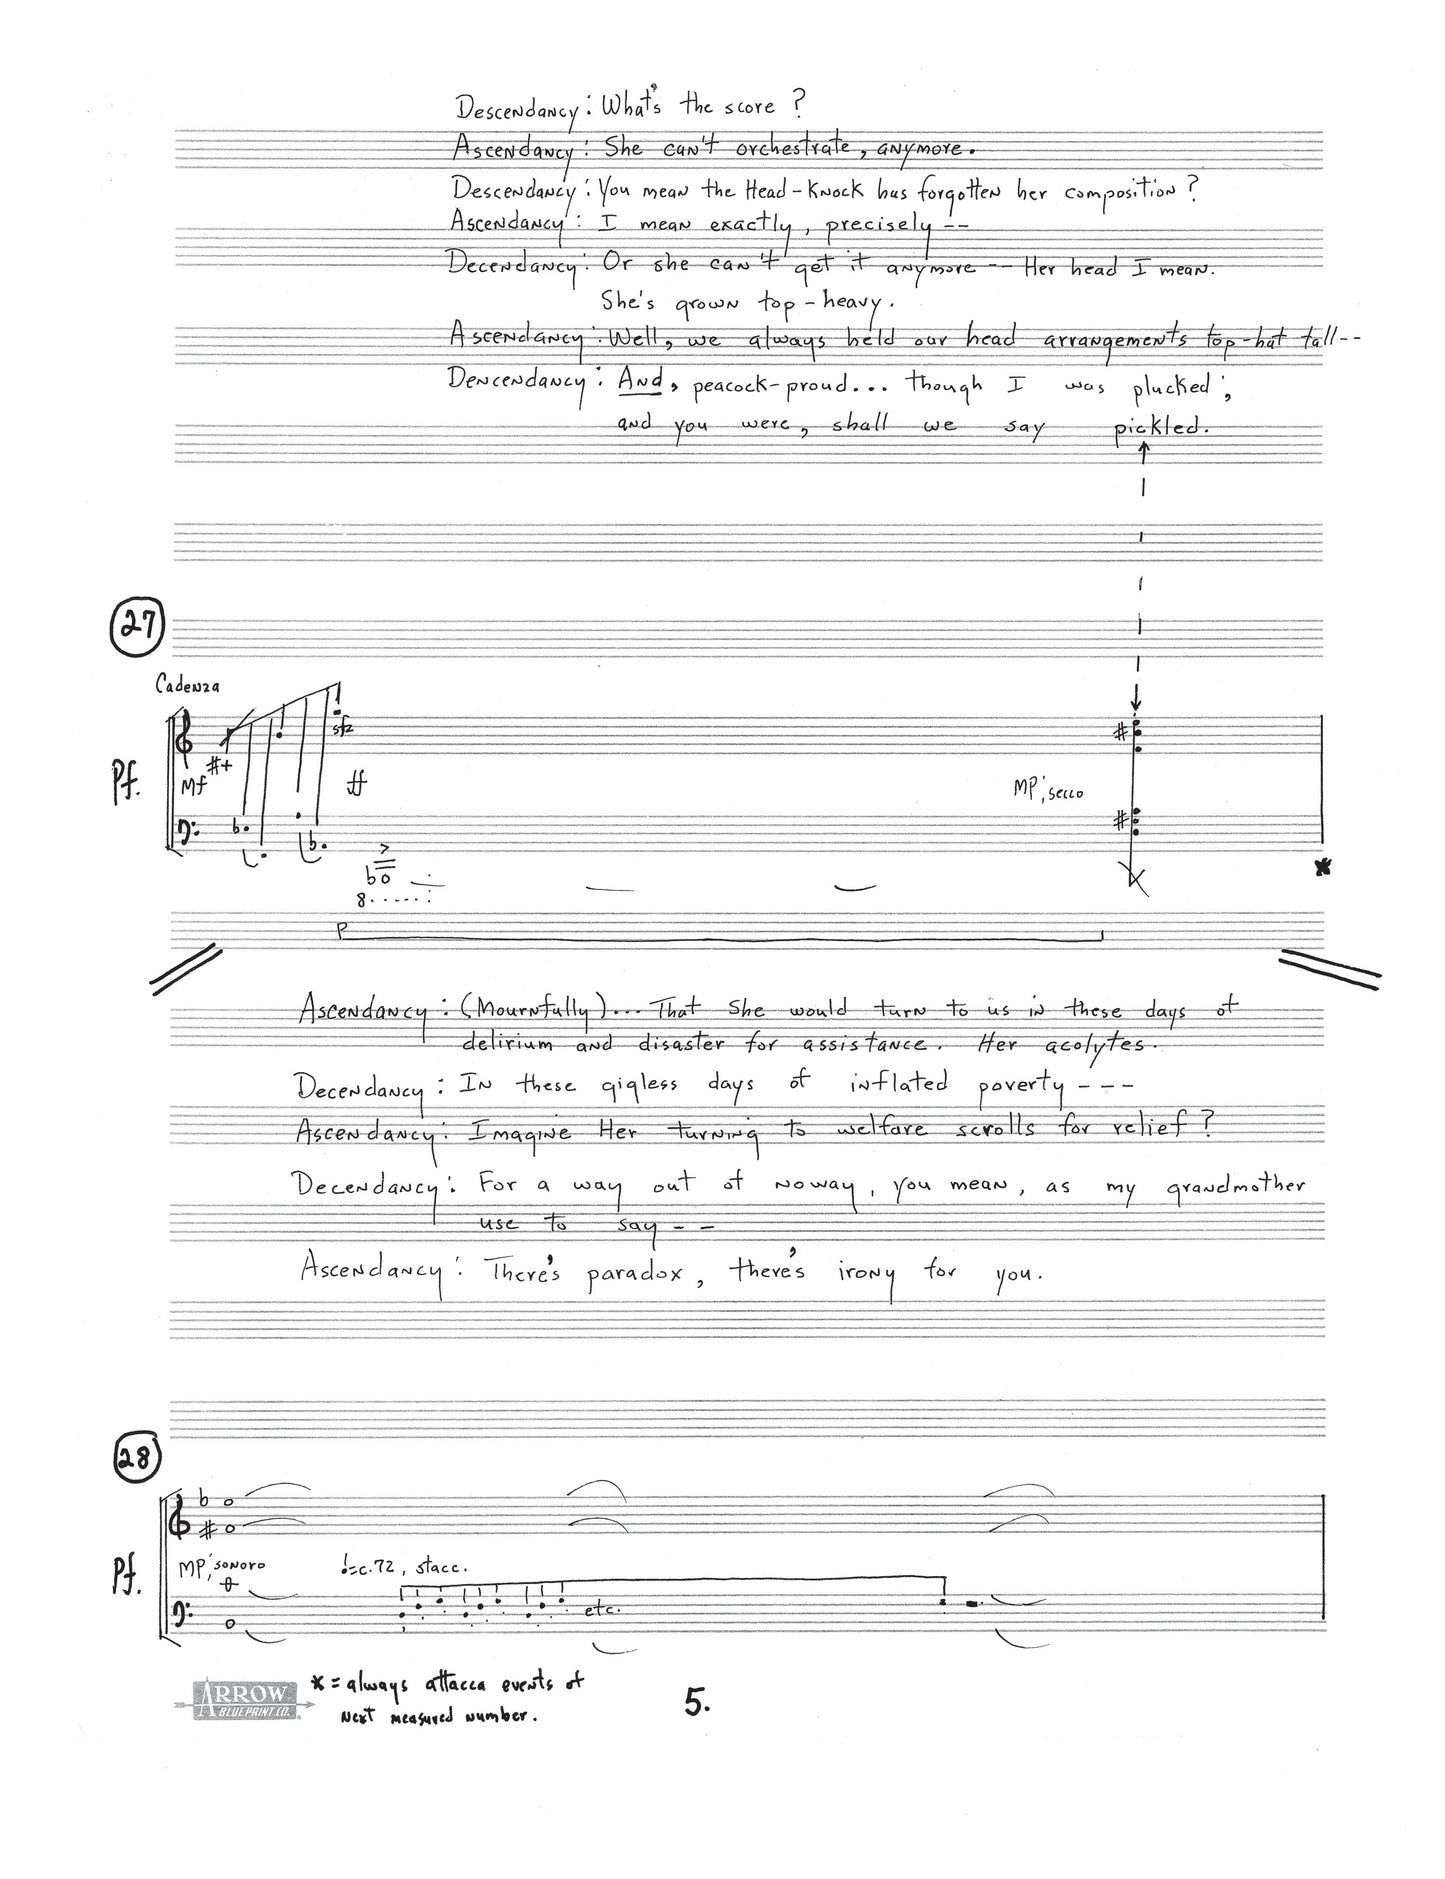 Descendancy: What's the score?
Ascendancy: She can't orchestrate, anymore.
Descendancy: You mean the Head-Knock has forgotten her composition?
Ascendancy: I mean exactly, precisely --
Decendancy: Or she can't get it anymore -- Her head I mean.
She's grown top-heavy.
Ascendancy: Well, we always held our head arrangements top-hat tall--
Dencendancy: And, peacock-proud... though I was plucked;
and you were, shall we say pickled.
27
Cadenza
sfz
Pf.
Mf
ff
MP, secco
8......
P
*
Ascendancy: (Mournfully)... That she would turn to us in these days of
delirium and disaster for assistance. Her acolytes.
Decendancy: In these gigless days of inflated poverty ---
Ascendancy: Imagine Her turning to welfare scrolls for relief?
Decendancy: For a way out of noway, you mean, as my grandmother
use to say --
Ascendancy: There's paradox, there's irony for you.
28
Pf.
MP, sonoro
♩=c.72, stacc.
etc.
ARROW
BLUEPRINT CO.
* = always attacca events of
next measured number.
5.